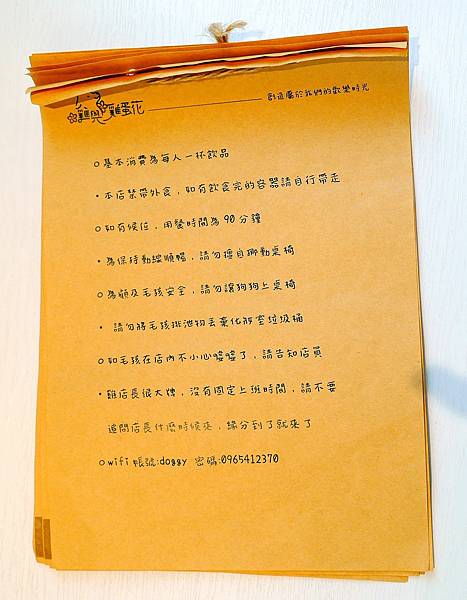 公雞與雞蛋花
創造屬於我們的歡樂時光
○基本消費為每人一杯飲品
•本店禁帶外食，如有飲食完的容器請自行帶走
○如有候位，用餐時間為90分鐘
•為保持動線順暢，請勿擅自挪動桌椅
○為顧及毛孩安全，請勿讓狗狗上桌椅
• 請勿將毛孩排泄物丟棄化妝室垃圾桶
○如毛孩在店內不小心噓噓了，請告知店員
•雞店長很大牌，沒有固定上班時間，請不要
追問店長什麼時候來，緣分到了就來了
○wifi帳號:doggy 密碼:0965412370